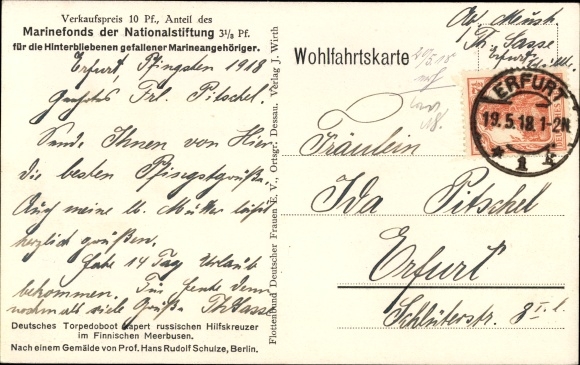 Verkaufspreis 10 Pf., Anteil des
Marinefonds der Nationalstiftung 3⅓ Pf.
für die Hinterbliebenen gefallener Marineangehöriger.
Erfurt, Pfingsten 1918
Geehrtes Frl. Pitschel.
Sende Ihnen von Hier
die besten Pfingstgrüße.
Auch meine lb. Mutter läßt
herzlich grüßen.
Habe 14 Tag Urlaub
bekommen. Für heute denn
nochmals viele Grüße Th Sasse
Deutsches Torpedoboot kapert russischen Hilfskreuzer
im Finnischen Meerbusen.
Nach einem Gemälde von Prof. Hans Rudolf Schulze, Berlin.
Flottenbund Deutscher Frauen E. V., Ortsgr. Dessau. Verlag J. Wirth
Wohlfahrtskarte
Th. Sasse
Erfurt
ERFURT
19.5.18.1-2N.
* 1
Fräulein
Ida Pitschel
Erfurt
Schlüterstr. 8 I. l.